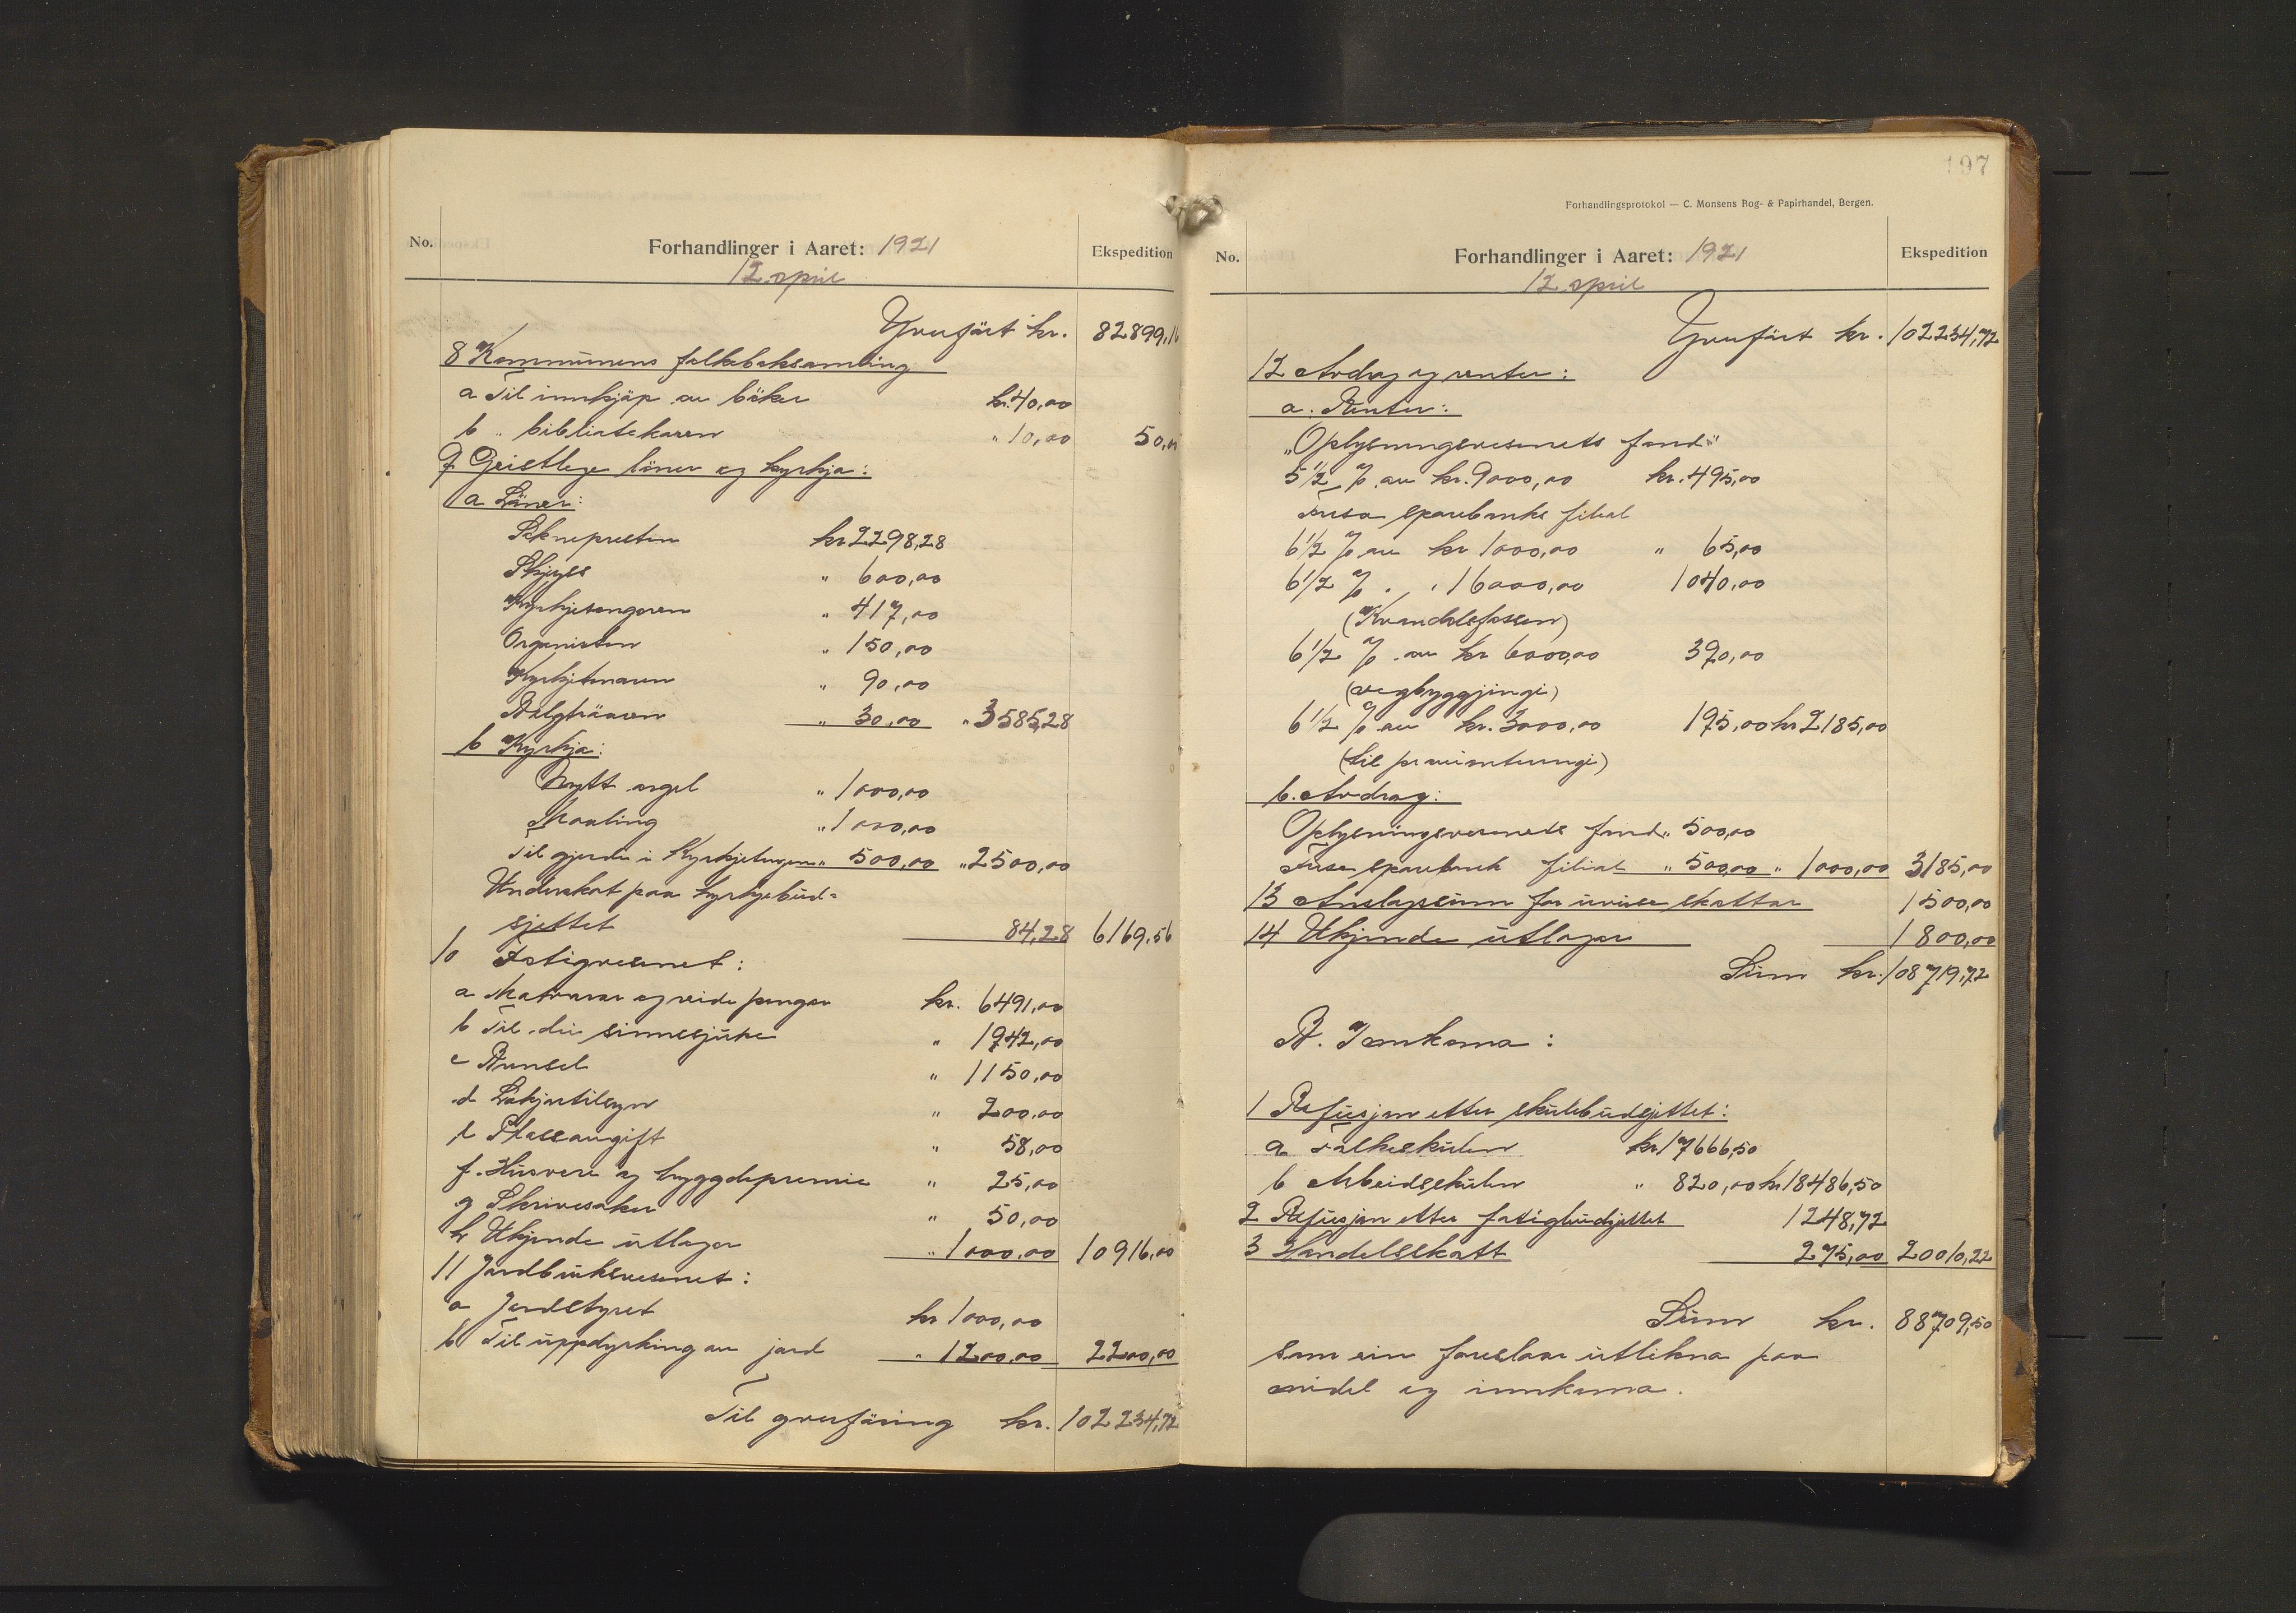 No.
Forhandlinger i Aaret: 1921
Ekspedition
12 april
Yverført kr. 82899,16
8 Kommunens folkeboksamling
a Til innkjøp av bøker kr. 40,00
b " bibliotekaren " 10,00 50,00
9 Geistlege løner og kyrkja:
a Løner:
Soknepresten kr 2298,28
Skyss " 600,00
Kyrkjesongaren " 417,00
Organisten " 150,00
Kyrkjetenaren " 90,00
Belgtrøaren " 30,00 " 3585,28
b Kyrkja:
Nytt orgel " 1000,00
Maaling " 1000,00
Til gjerde i Kyrkjetunene " 500,00 " 2500,00
Underskot paa kyrkjebud-
sjettet 84,28 6169,56
10 Fatigvesenet:
a Matvarar og reide pengar kr. 6491,00
b Til dei sinnssjuke " 1942,00
c Bunsel " 1150,00
d Lækjartilsyn " 200,00
e Plassavgift " 58,00
f. Husvere og byggdepremie " 25,00
g Skrivesaker " 50,00
h Ukjende utlogor " 1000,00 10916,00
11 Jordbruksvesenet:
a Jordstyret kr 1000,00
b Til uppdyrking av jord " 1200,00 2200,00
Til yverføring kr. 102234,72
197
Forhandlingsprotokol — C. Monsens Bog- & Papirhandel, Bergen.
No.
Forhandlinger i Aaret: 1921
Ekspedition
12 april
Yverført kr. 102234,72
12 Avdrag og renter:
a. Renter:
"Oplysningsvesenets fond"
5 1/2 % av kr. 9000,00 kr. 495,00
Fusa sparebanks filial
6 1/2 % av kr 1000,00 " 65,00
6 1/2 % " " 16000,00 1040,00
(Kvandalsfossen)
6 1/2 % av kr 6000,00 390,00
(vegbyggjingi)
6 1/2 % av kr. 3000,00 195,00 kr 2185,00
(til provianteringi)
b. Avdrag:
Oplysningsvesenets fond " 500,00
Fusa sparebank filial " 500,00 " 1000,00 3185,00
13 Anslagssum for uvisse skattar 1500,00
14 Ukjende utlogor 1800,00
Sum kr. 108719,72
B. Innkoma:
1 Refusjon etter skulebudsjettet:
a Folkeskulen kr 17666,50
b Arbeidsskulen " 820,00 kr 18486,50
2 Refusjon etter fatigbudsjettet 1248,72
3 Handelsskatt 275,00 20010,22
Sum kr. 88709,50
som ein foreslaar utlikna paa
eidel og innkoma.